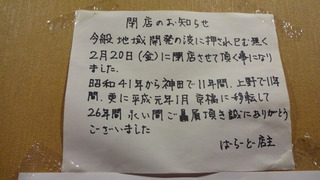 閉店のお知らせ
今般地域開発の波に押され已む無く
2月20日(金)に閉店させて頂く事になり
ました.
昭和41年から神田で11年間.上野で11年
間.更に平成元年1月京橋に移転して
26年間永い間ご贔屓頂き誠にありがとう
ございました
ばーらーどー店主